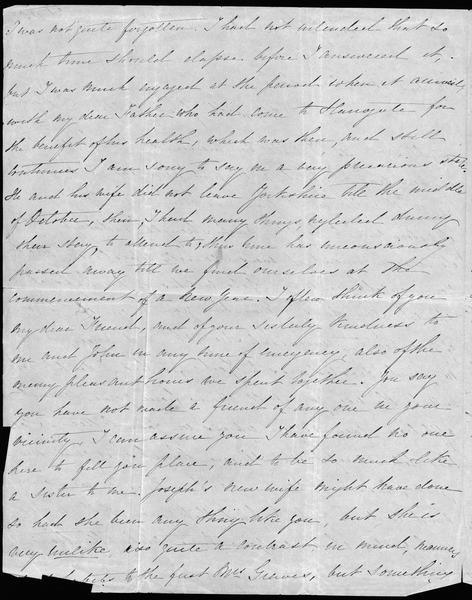 I was not quite forgotten. I had not intended that so
much time should elapse before I answered it,
but I was much engaged at the period when it arrived
with my dear Father who had come to Harrogate for
the benefit of his health, which was then, and still
continues I am sorry to say in a very precarious state.
He and his wife did not leave Yorkshire till the middle
of October, then, I had many things neglected during
their stay, to attend to; thus time has unconsciously
passed away till we find ourselves at the
commencement of a New Year. I often think of you
my dear Friend, and of your Sisterly kindness to
me and John in any time of emergency, also of the
many pleasant hours we spent together. You say
you have not made a friend of any one in your
vicinity. I can assure you I have found no one
here to fill your place, and to be so much like
a sister to me. Joseph's new wife might have done
so had she been any thing like you, but she is
very unlike, also quite a contrast in mind, manners
to the first Mrs Greaves, but something